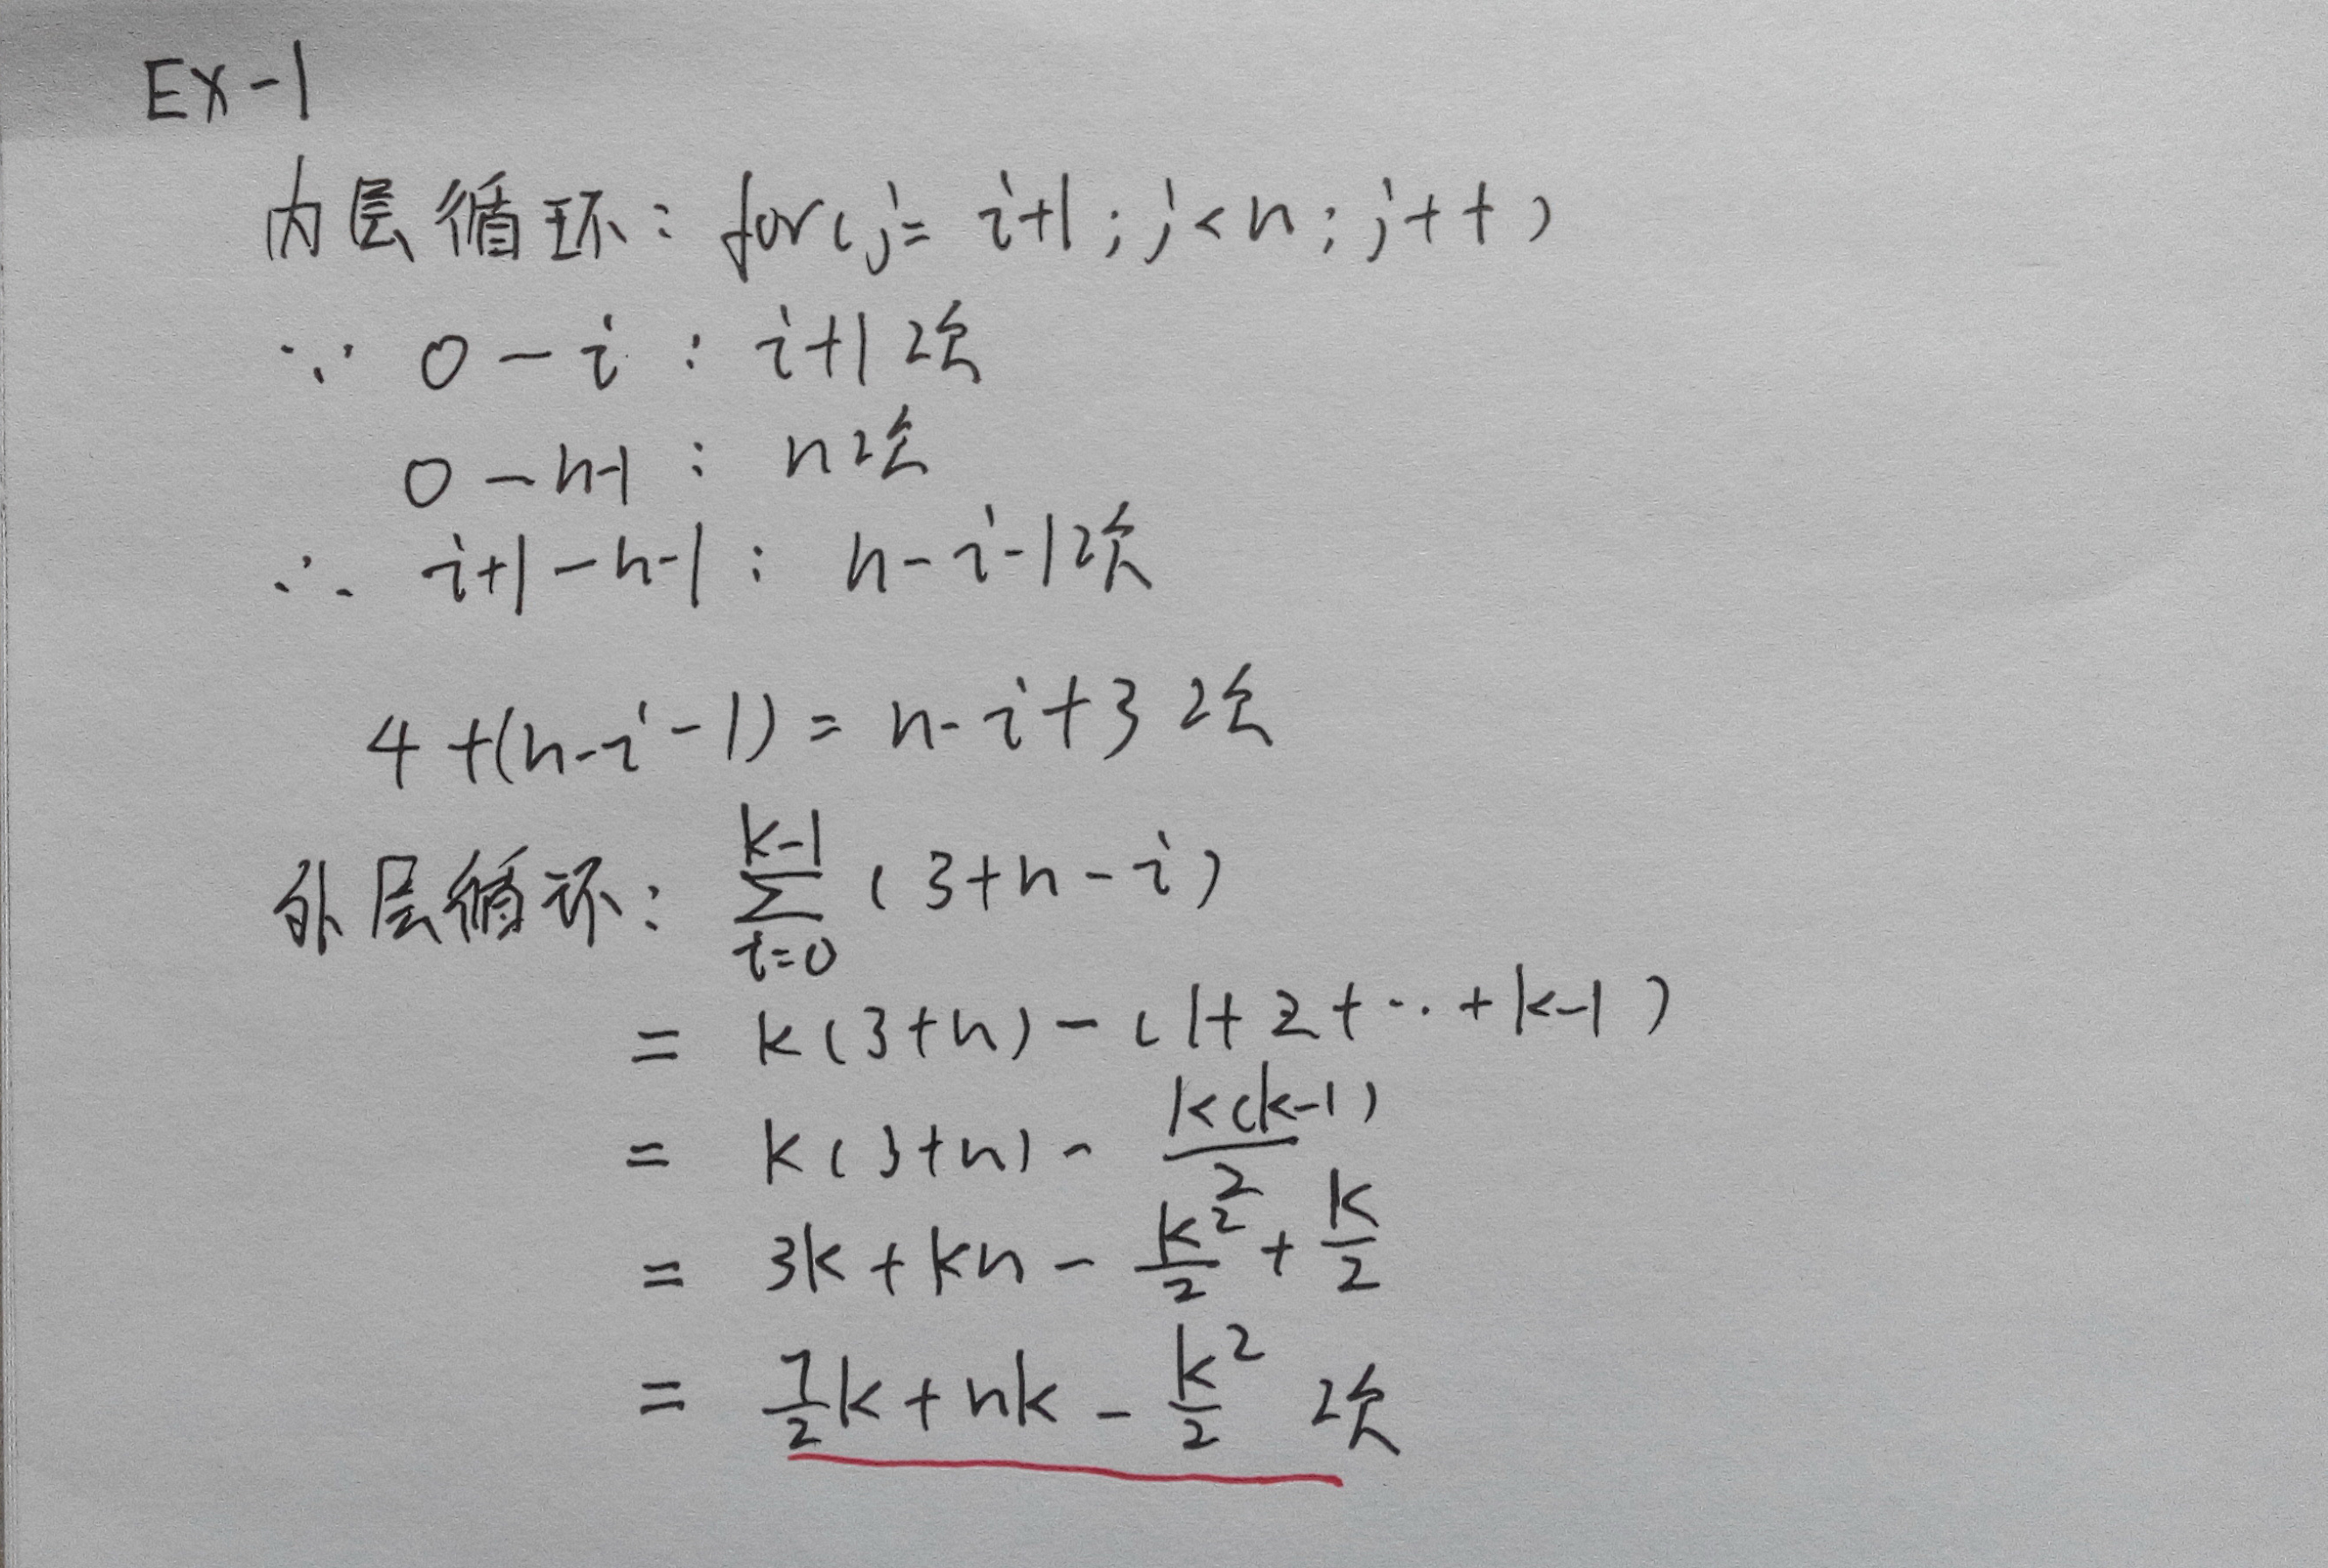 Ex-1
内层循环: for(j= i+1; j<n; j++)
∵ 0-i : i+1次
0-n-1 : n次
∴ i+1-n-1 : n-i-1次
4+(n-i-1) = n-i+3次
外层循环: ∑_{i=0}^{k-1} (3+n-i)
= k(3+n)-(1+2+…+k-1)
= k(3+n)-\frac{k(k-1)}{2}
= 3k+kn-\frac{k²}{2}+\frac{k}{2}
= \frac{7}{2}k+nk-\frac{k²}{2} 次